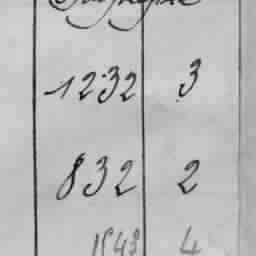 1232 3
832 2
1843 4